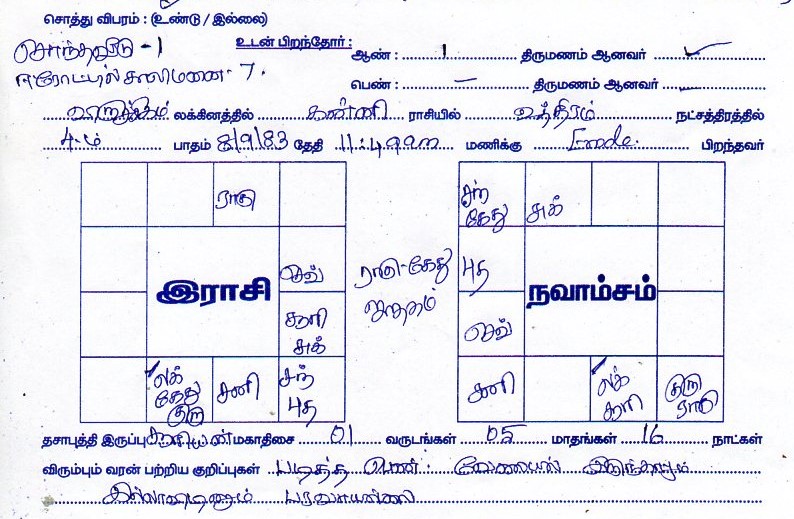 சொத்து விபரம் : (உண்டு / இல்லை)
சொந்தவீடு - 1 உடன் பிறந்தோர் : ஆண் : 1 திருமணம் ஆனவர்
ஈரோட்டில் காலிமனை - 7. பெண் : — திருமணம் ஆனவர்
லக்கினத்தில் கன்னி ராசியில் உத்திரம் நட்சத்திரத்தில்
4-ம் பாதம் 8/9/83 தேதி 11:49 மணிக்கு Erode. பிறந்தவர்
ராகு சந் கேது சுக்
செவ் ராகு-கேது புத
இராசி ஜாதகம் நவாம்சம்
சூரி சுக் செவ்
லக் கேது குரு சனி சந் புத சனி லக் சூரி குரு ராகு
தசாபுத்தி இருப்பு சூரியன் மகாதிசை 01 வருடங்கள் 05 மாதங்கள் 16 நாட்கள்
விரும்பும் வரன் பற்றிய குறிப்புகள் படித்த பெண். வேலையில் இருந்தாலும்
இல்லாவிட்டாலும் பரவாயில்லை